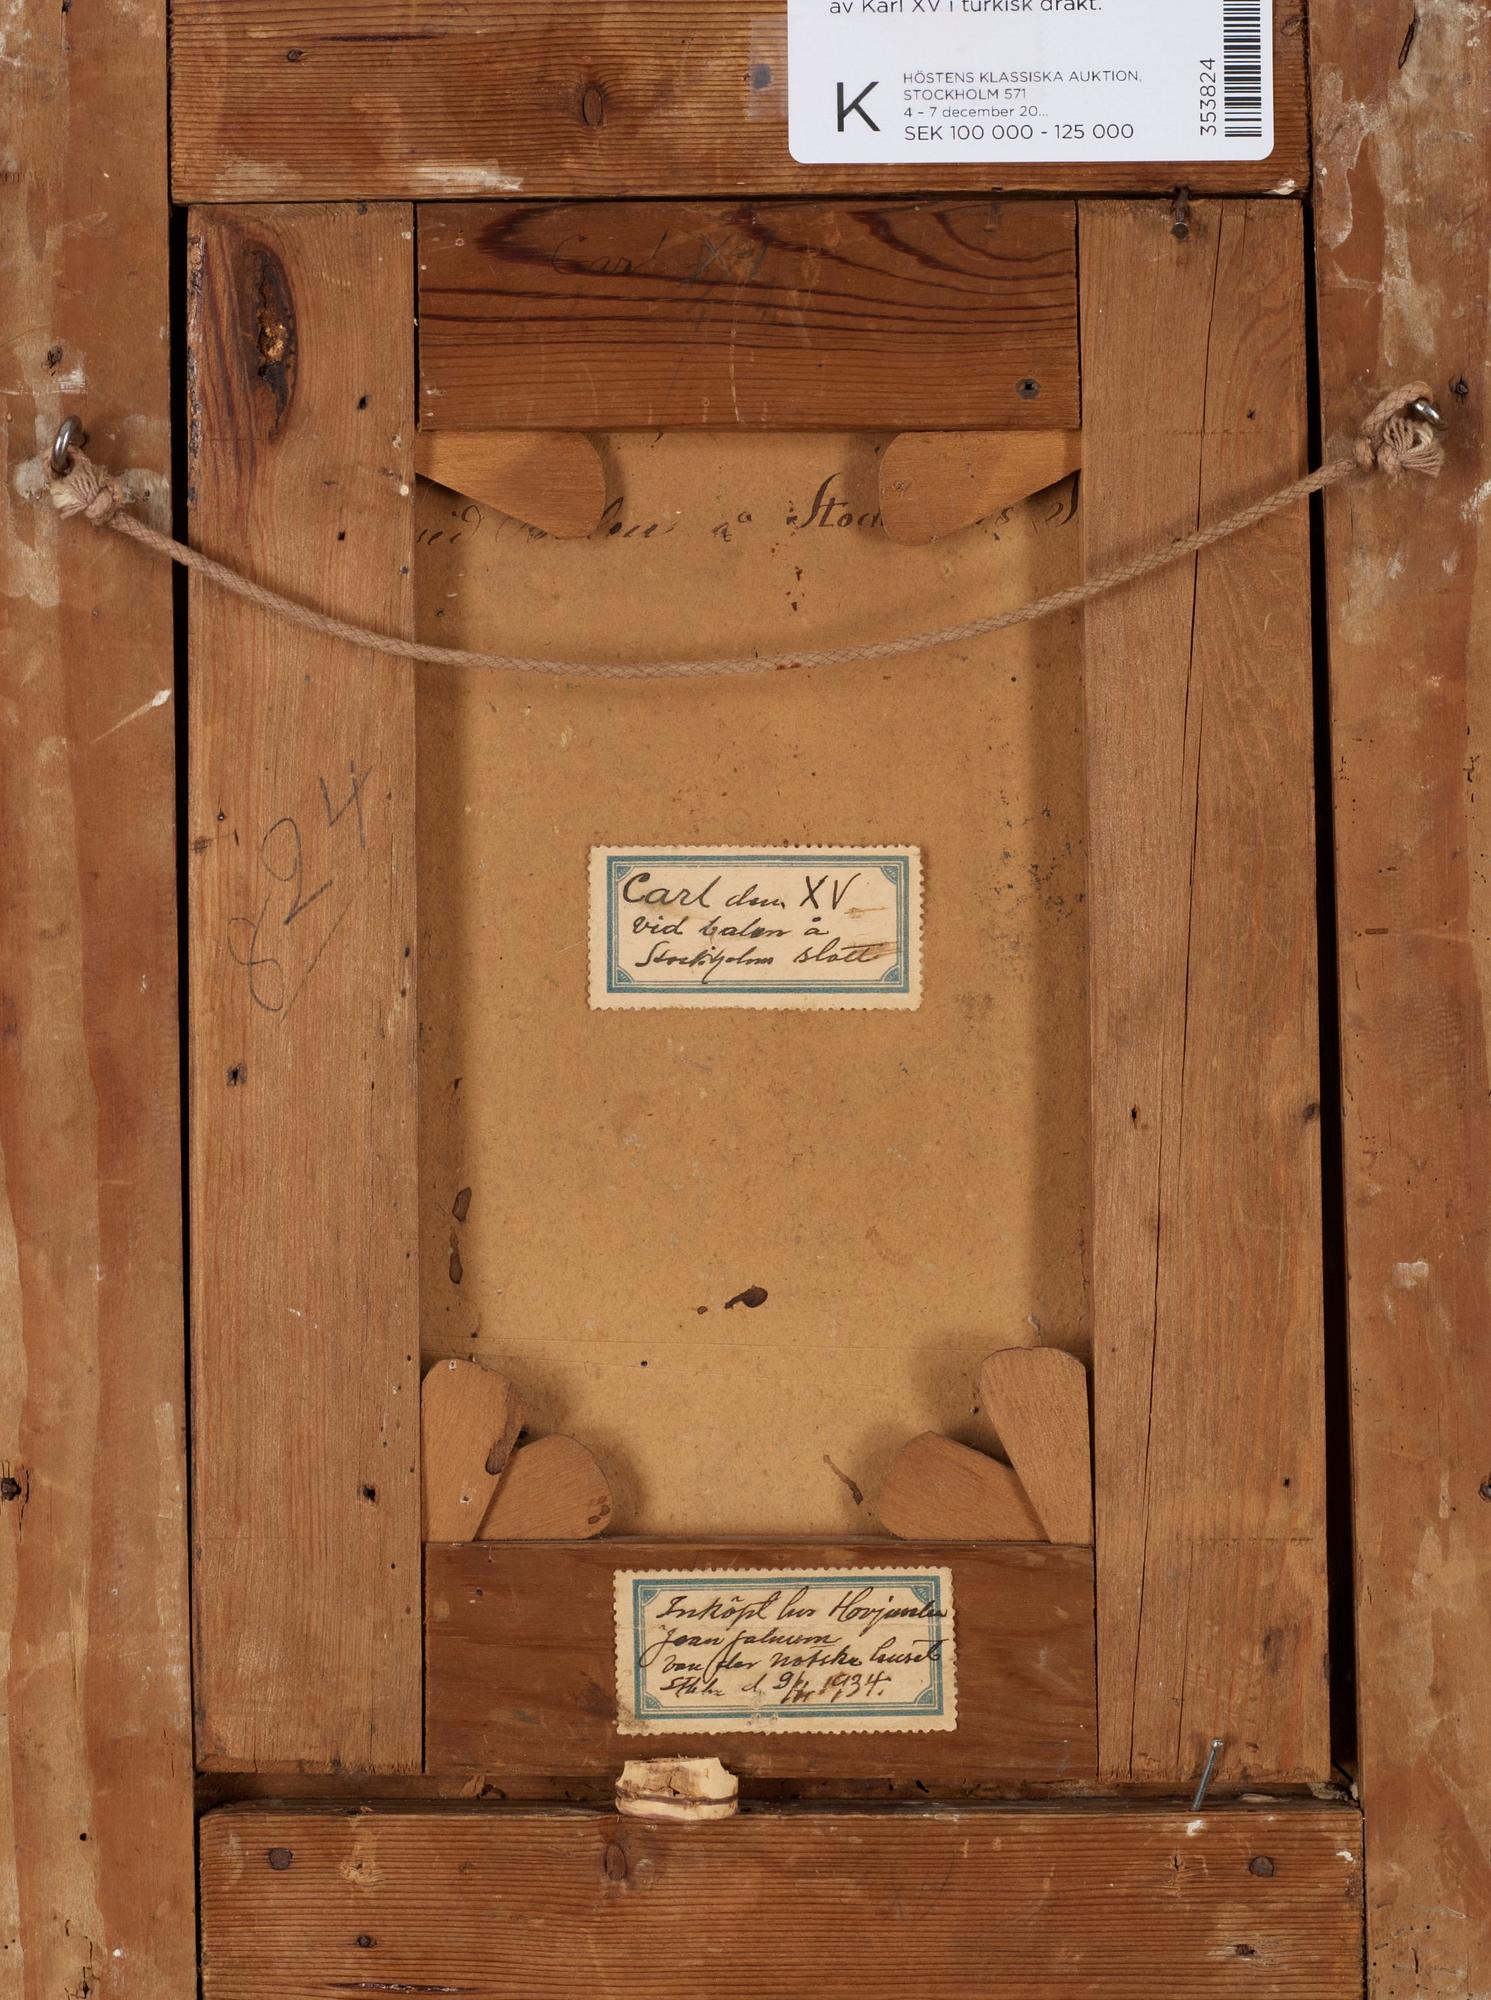 av Karl XV i turkisk dräkt.
K
HÖSTENS KLASSISKA AUKTION,
STOCKHOLM 571
4 – 7 december 20...
SEK 100 000 - 125 000
353824
Carl XV
824
Carl den XV
vid balen å
Stockholms slott
Inköpt hos Hovjuveler
Jean Jahnsson
von der Notska huset
Sthlm d. 1934.